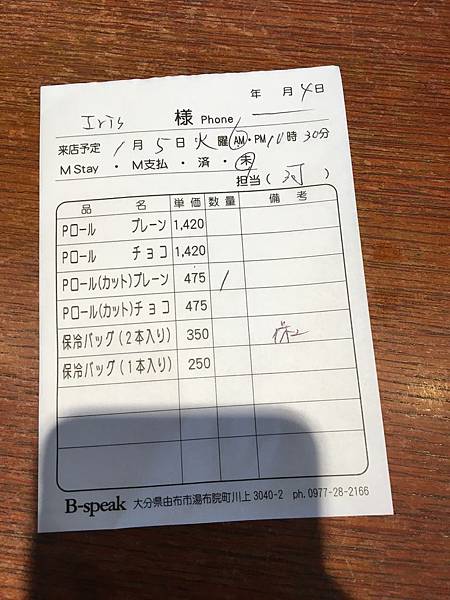 年 月 4日
Iris 様 Phone
来店予定 1月5日 火曜 AM・PM 10時30分
M Stay ・ M支払 ・ 済 ・ 未
担当 ( 河 )
品 名 単価 数量 備考
Pロール プレーン 1,420
Pロール チョコ 1,420
Pロール(カット)プレーン 475 1
Pロール(カット)チョコ 475
保冷バッグ(2本入り) 350
保冷バッグ(1本入り) 250
B-speak 大分県由布市湯布院町川上 3040-2 ph. 0977-28-2166